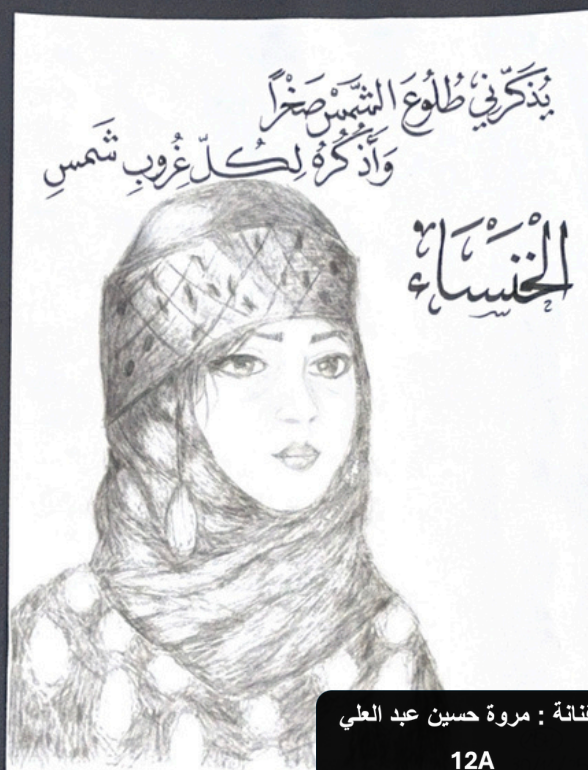 يُذَكِّرُنِي طُلُوعَ الشَّمْسِ صَخْرًا
وَأَذْكُرُهُ لِكُلِّ غُرُوبِ شَمْسِ
الخنساء
: مروة حسين عبد العلي
12A